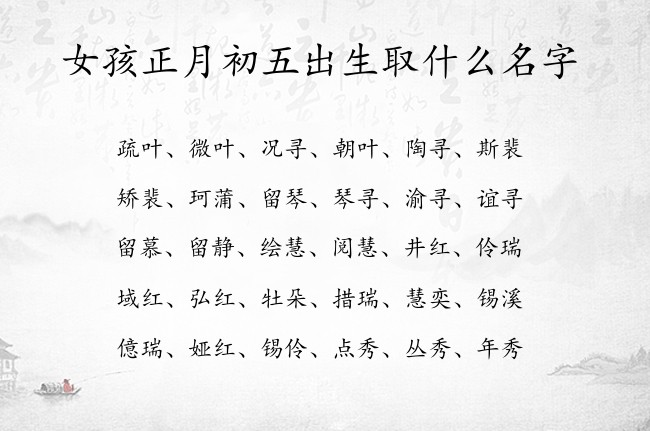 女孩正月初五出生取什么名字
疏叶、微叶、况寻、朝叶、陶寻、斯裴
矫裴、珂蒲、留琴、琴寻、渝寻、谊寻
留慕、留静、绘慧、阅慧、井红、伶瑞
域红、弘红、牡朵、措瑞、慧奕、锡溪
億瑞、娅红、锡伶、点秀、丛秀、年秀